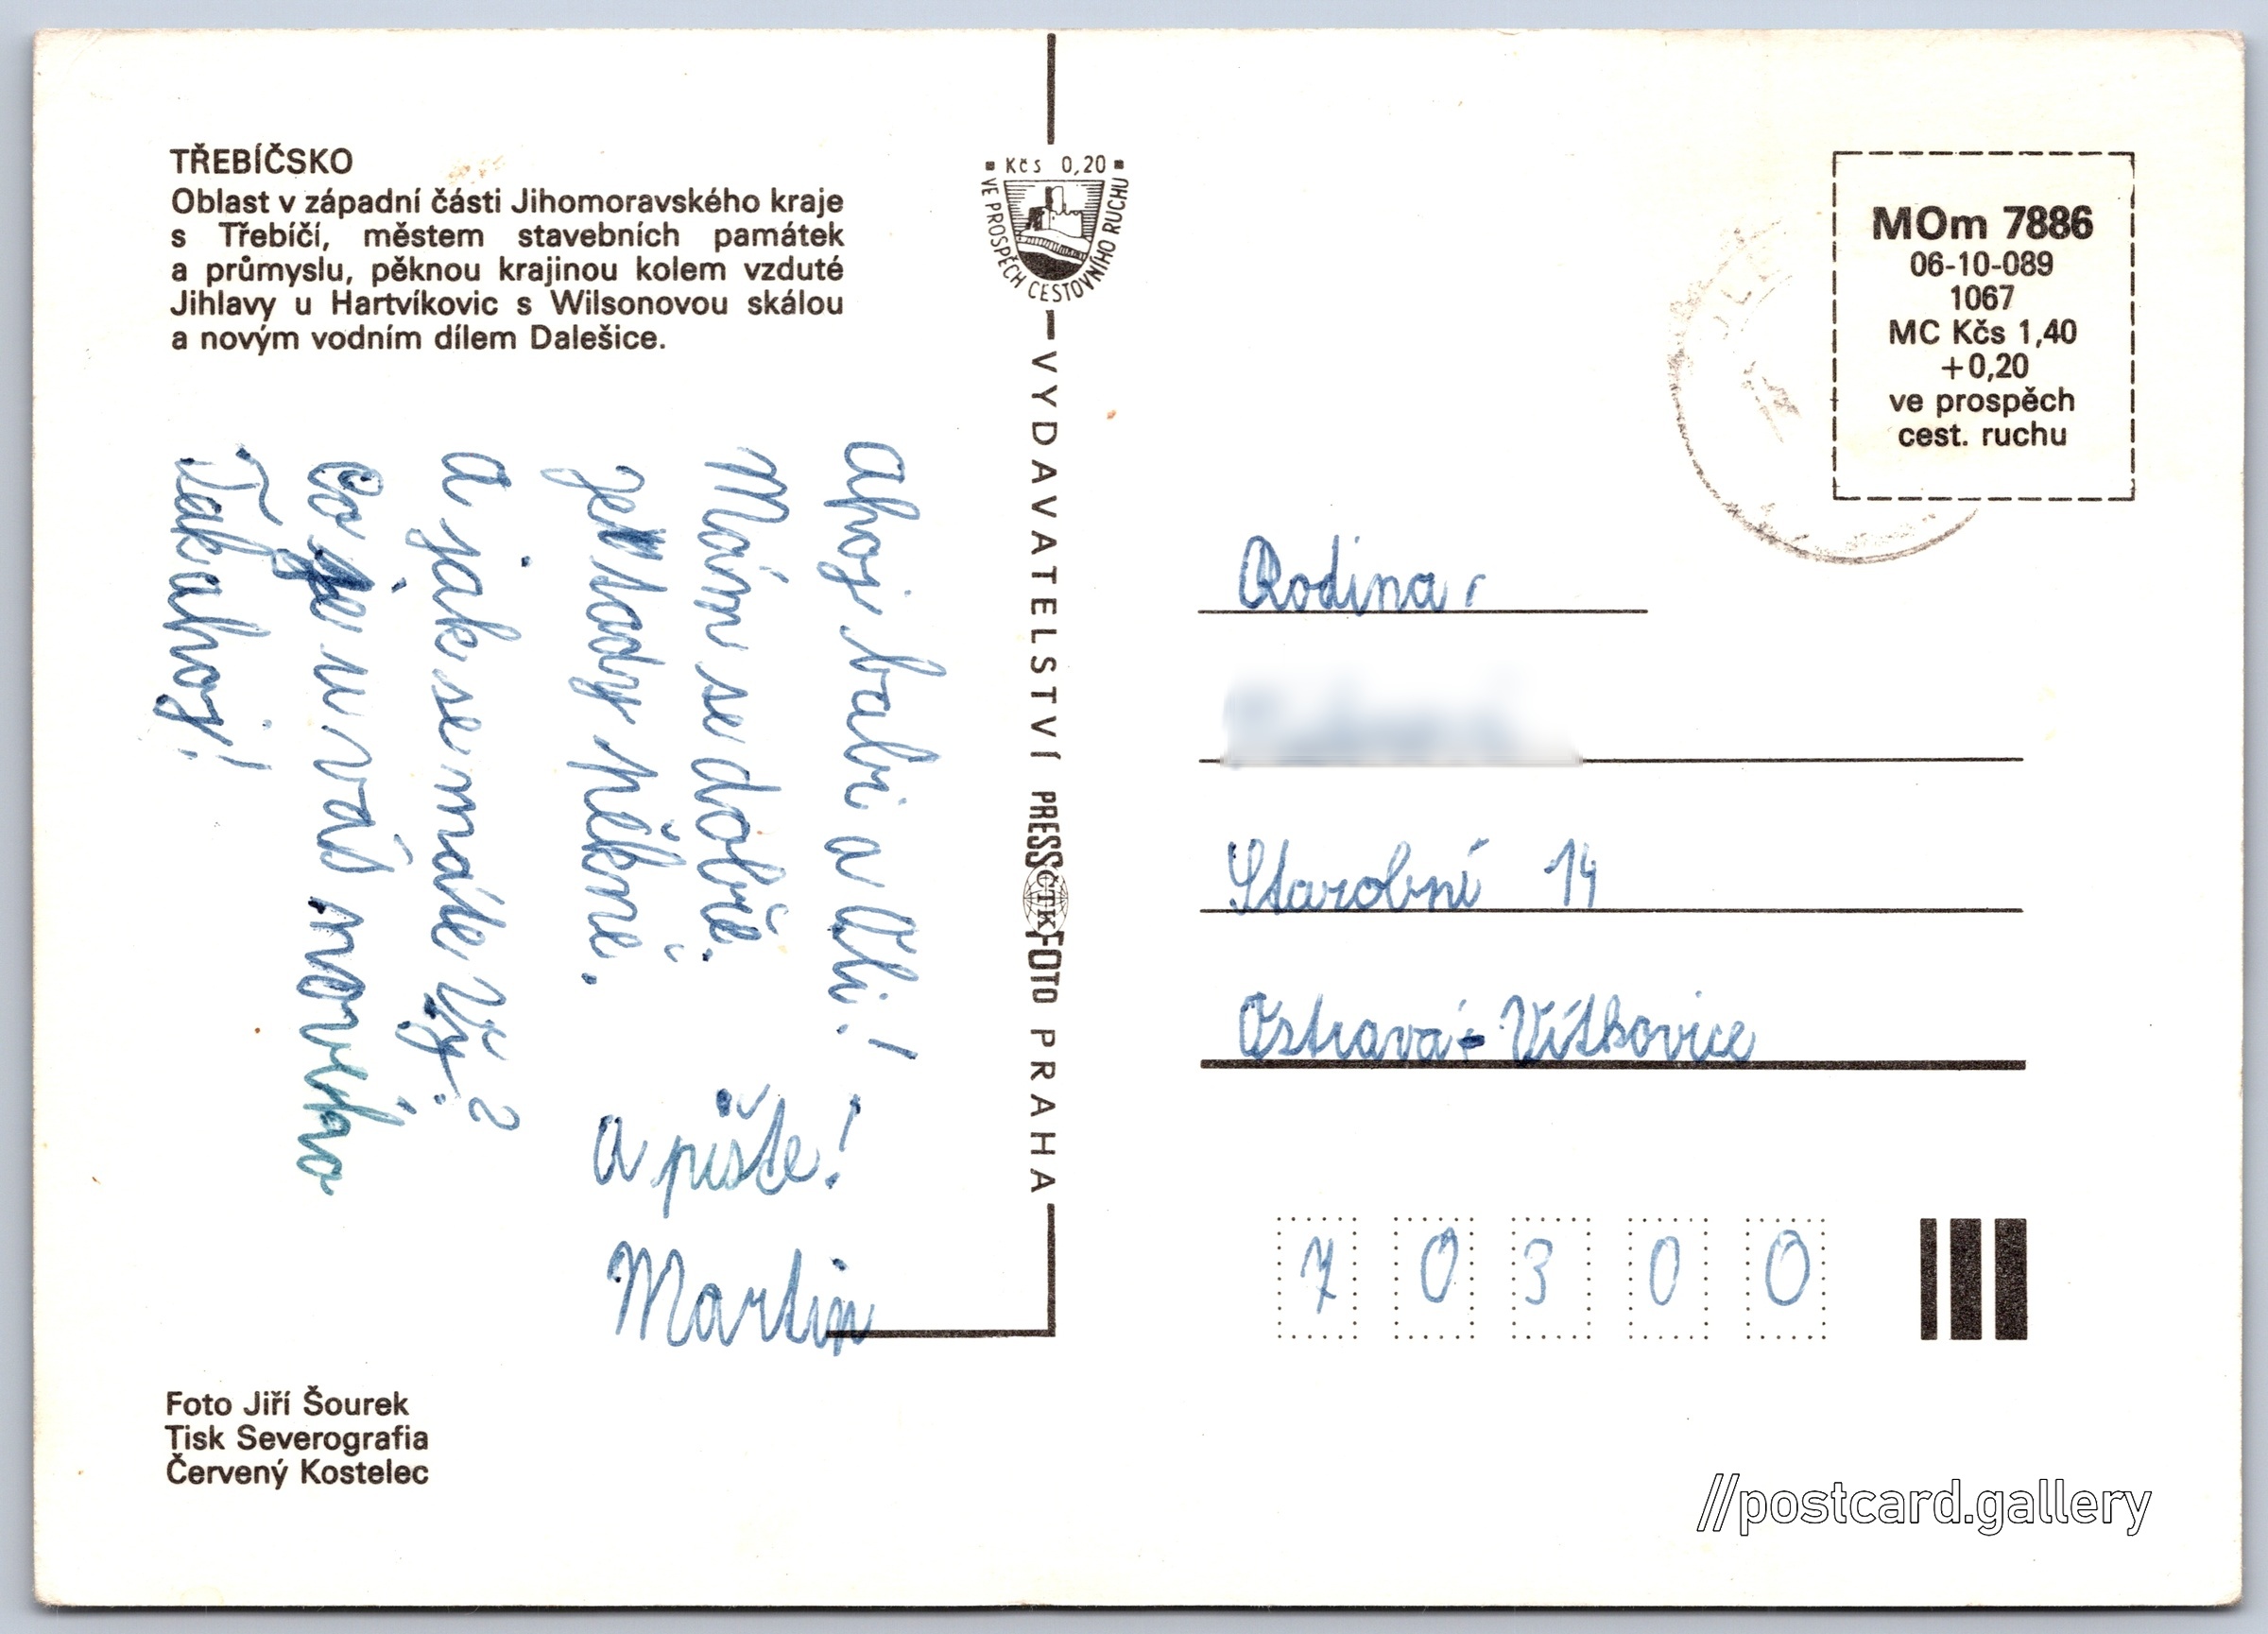 TŘEBÍČSKO
Oblast v západní části Jihomoravského kraje
s Třebíčí, městem stavebních památek
a průmyslu, pěknou krajinou kolem vzduté
Jihlavy u Hartvíkovic s Wilsonovou skálou
a novým vodním dílem Dalešice.
Ahoj babi a Oli!
Mám se dobře.
je tady pěkně.
a jak se máte Vy?
Co je u vás nového
Tak ahoj!
a pište!
Martin
Foto Jiří Šourek
Tisk Severografia
Červený Kostelec
Kčs 0,20
VE PROSPĚCH CESTOVNÍHO RUCHU
VYDAVATELSTVÍ PRESSFOTO PRAHA
ČTK
MOm 7886
06-10-089
1067
MC Kčs 1,40
+0,20
ve prospěch
cest. ruchu
Rodina
Starobní 14
Ostrava - Vítkovice
7 0 3 0 0
//postcard.gallery